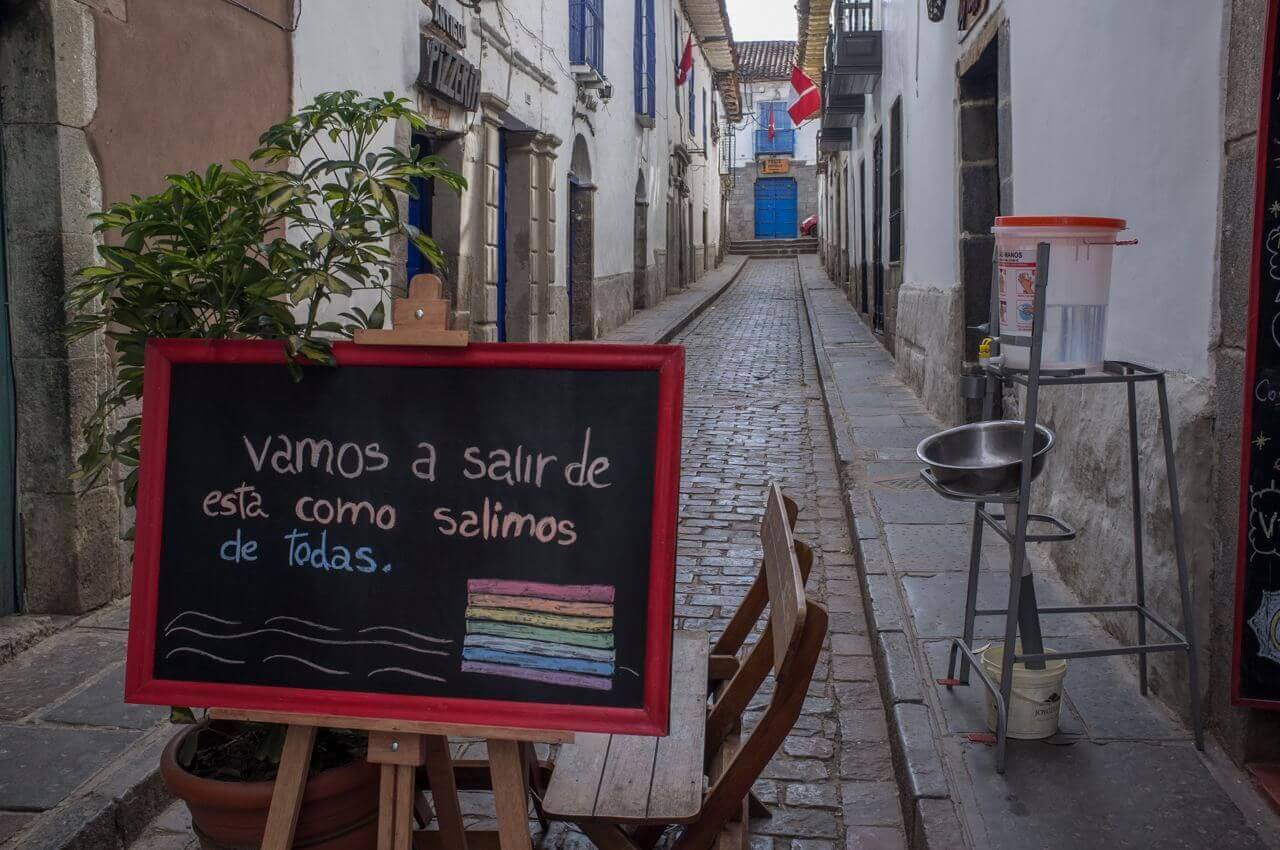 ANTIGUA
PIZZERIA
vamos a salir de
esta como salimos
de todas.
MANOS